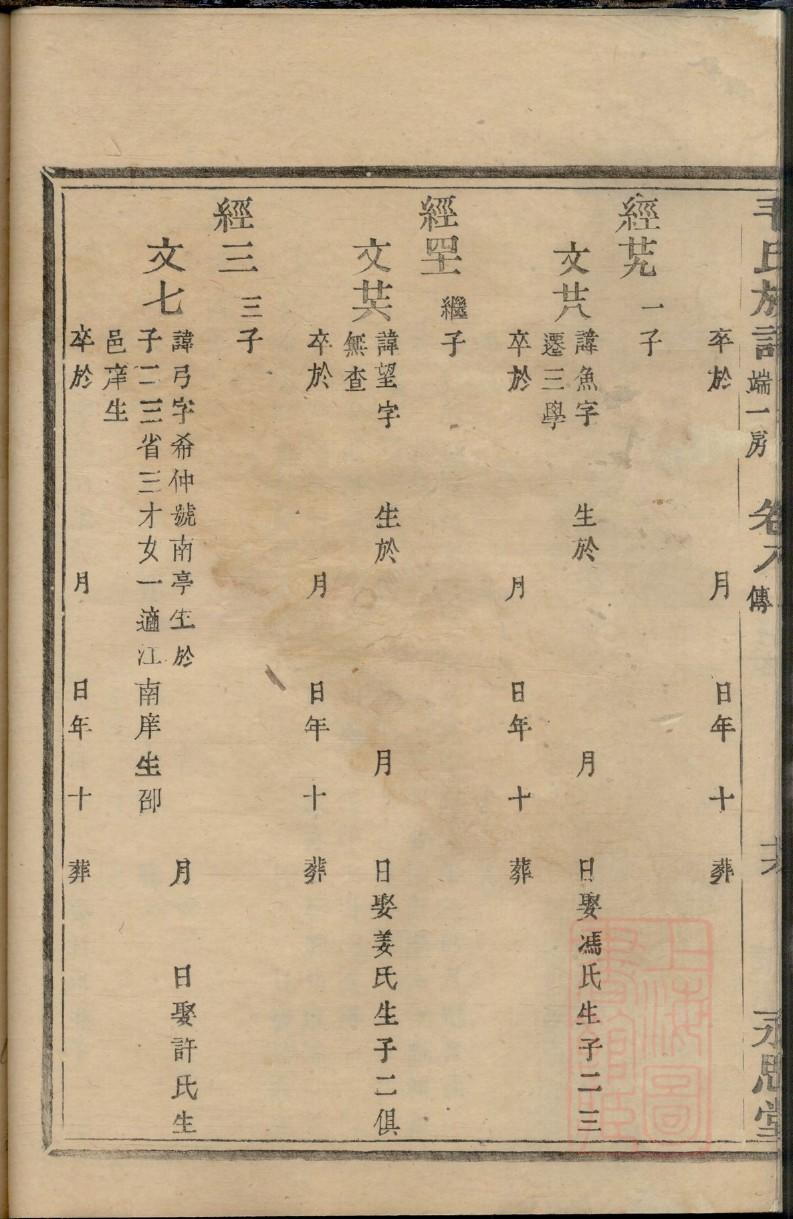 毛氏族譜 端一房 卷八 傳 永思堂
卒於 月 日年十 葬
經艽 一子
文芃 諱魚字 生於 月 日娶馮氏生子二三
遷三學
卒於 月 日年十 葬
經罜 繼子
文其 諱望字 生於 月 日娶姜氏生子二俱
無查
卒於 月 日年十 葬
經三 三子
文七 諱弓字希仲號南亭生於 月 日娶許氏生
子二三省三才女一適江南庠生邵
邑庠生
卒於 月 日年十 葬
上海圖書館藏